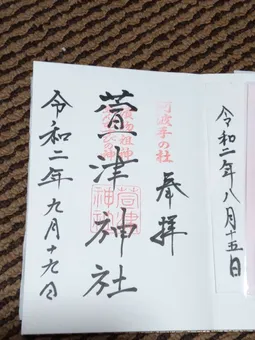 令和二年八月十五日
阿波手の杜
奉拝
萱津神社
令和二年九月十九日